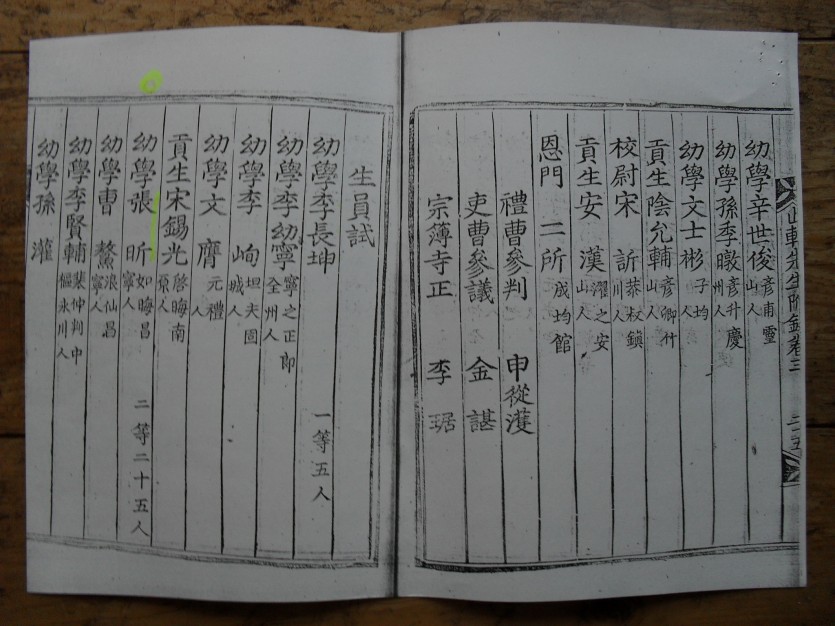 幼學辛世俊 彦甫靈山人
幼學孫季暾 彦升慶州人
幼學文士彬 子均 人
貢生陰允輔 彦卿竹山人
校尉宋訢 恭叔鎮川人
貢生安漢 濯之安山人
恩門 二所 成均館
禮曹參判 申從濩
吏曹參議 金諶
宗簿寺正 李琚
生員試
幼學李長坤 一等五人
幼學李幼寧 寧之正郎全州人
幼學李峋 坦夫固城人
幼學文膺 元禮 人
貢生宋錫光 啓晦南原人
幼學張昕 如晦昌寧人 二等二十五人
幼學曹鰲 浪仙昌寧人
幼學李賢輔 棐仲判中樞永川人
幼學孫灌